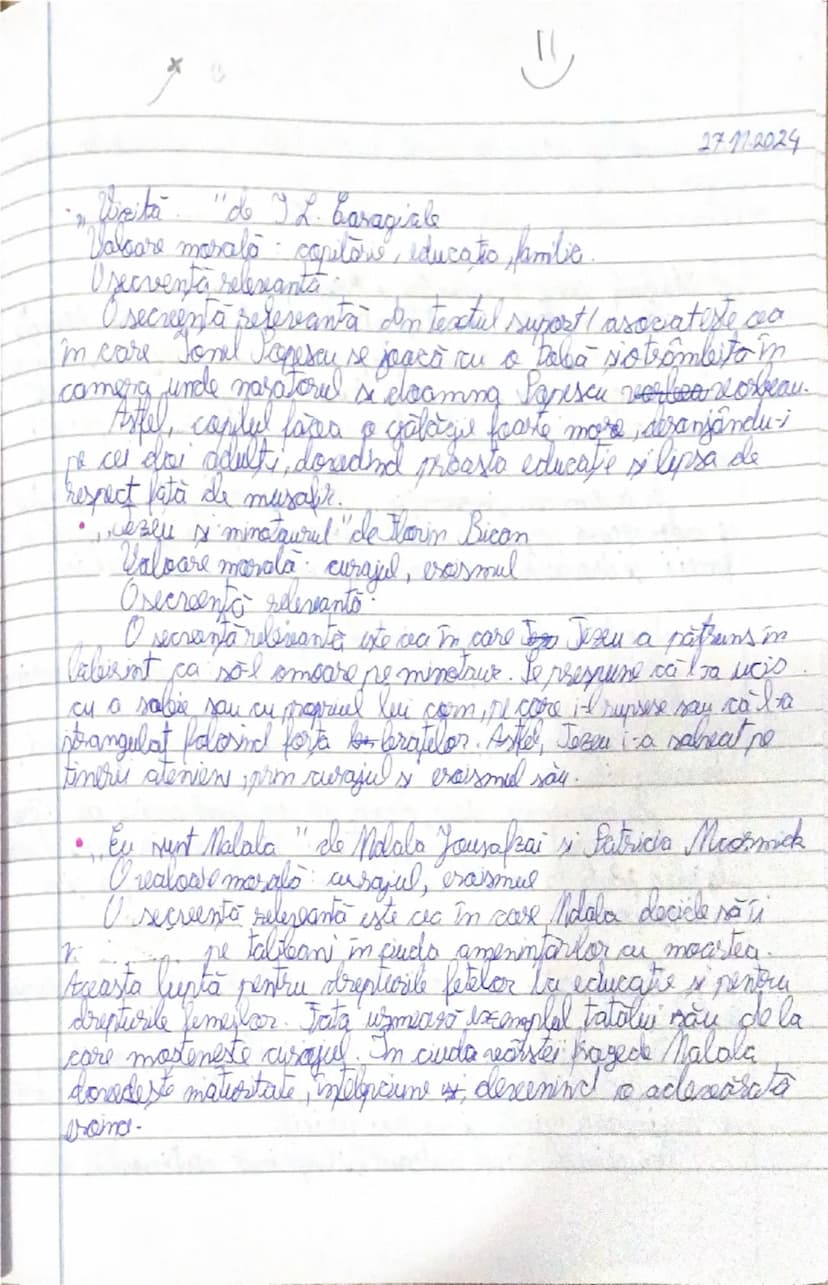 27.11.2024
„Vizită "de I L. Caragiale
Valoare morală: copilărie, educație, familie.
O secvență relevantă:
O secvență relevantă din textul suport 1 asociat este cea
în care Ionel Popescu se joacă cu o tobă și o trâmbiță în
camera unde naratorul și doamna Popescu vorbeau.
Astfel, copilul făcea o gălăgie foarte mare, deranjându-i
pe cei doi adulți, dovedind proasta educație și lipsa de
respect față de musafir.
• „Tezeu și minotaurul" de Florin Bican
Valoare morală: curajul, eroismul
O secvență relevantă:
O secvență relevantă este cea în care Tezeu a pătruns în
labirint ca să-l omoare pe minotaur. Se prespune că l-a ucis
cu o sabie sau cu propriul lui corn, pe care i-l rupsese sau că l-a
strangulat folosind forța brațelor. Astfel, Tezeu i-a salvat pe
tinerii atenieni, prin curajul și eroismul său.
• „Eu sunt Malala" de Malala Yousafzai și Patricia Mccormick
O valoare morală: curajul, eroismul
O secvență relevantă este cea în care Malala decide să îi
pe talibani în ciuda amenințărilor cu moartea.
Aceasta luptă pentru drepturile fetelor la educație și pentru
drepturile femeilor. Fata urmează exemplul tatălui său de la
care moștenește curajul. În ciuda vârstei fragede Malala
dovedește maturitate, înțelepciune, devenind o adevărată
eroină.